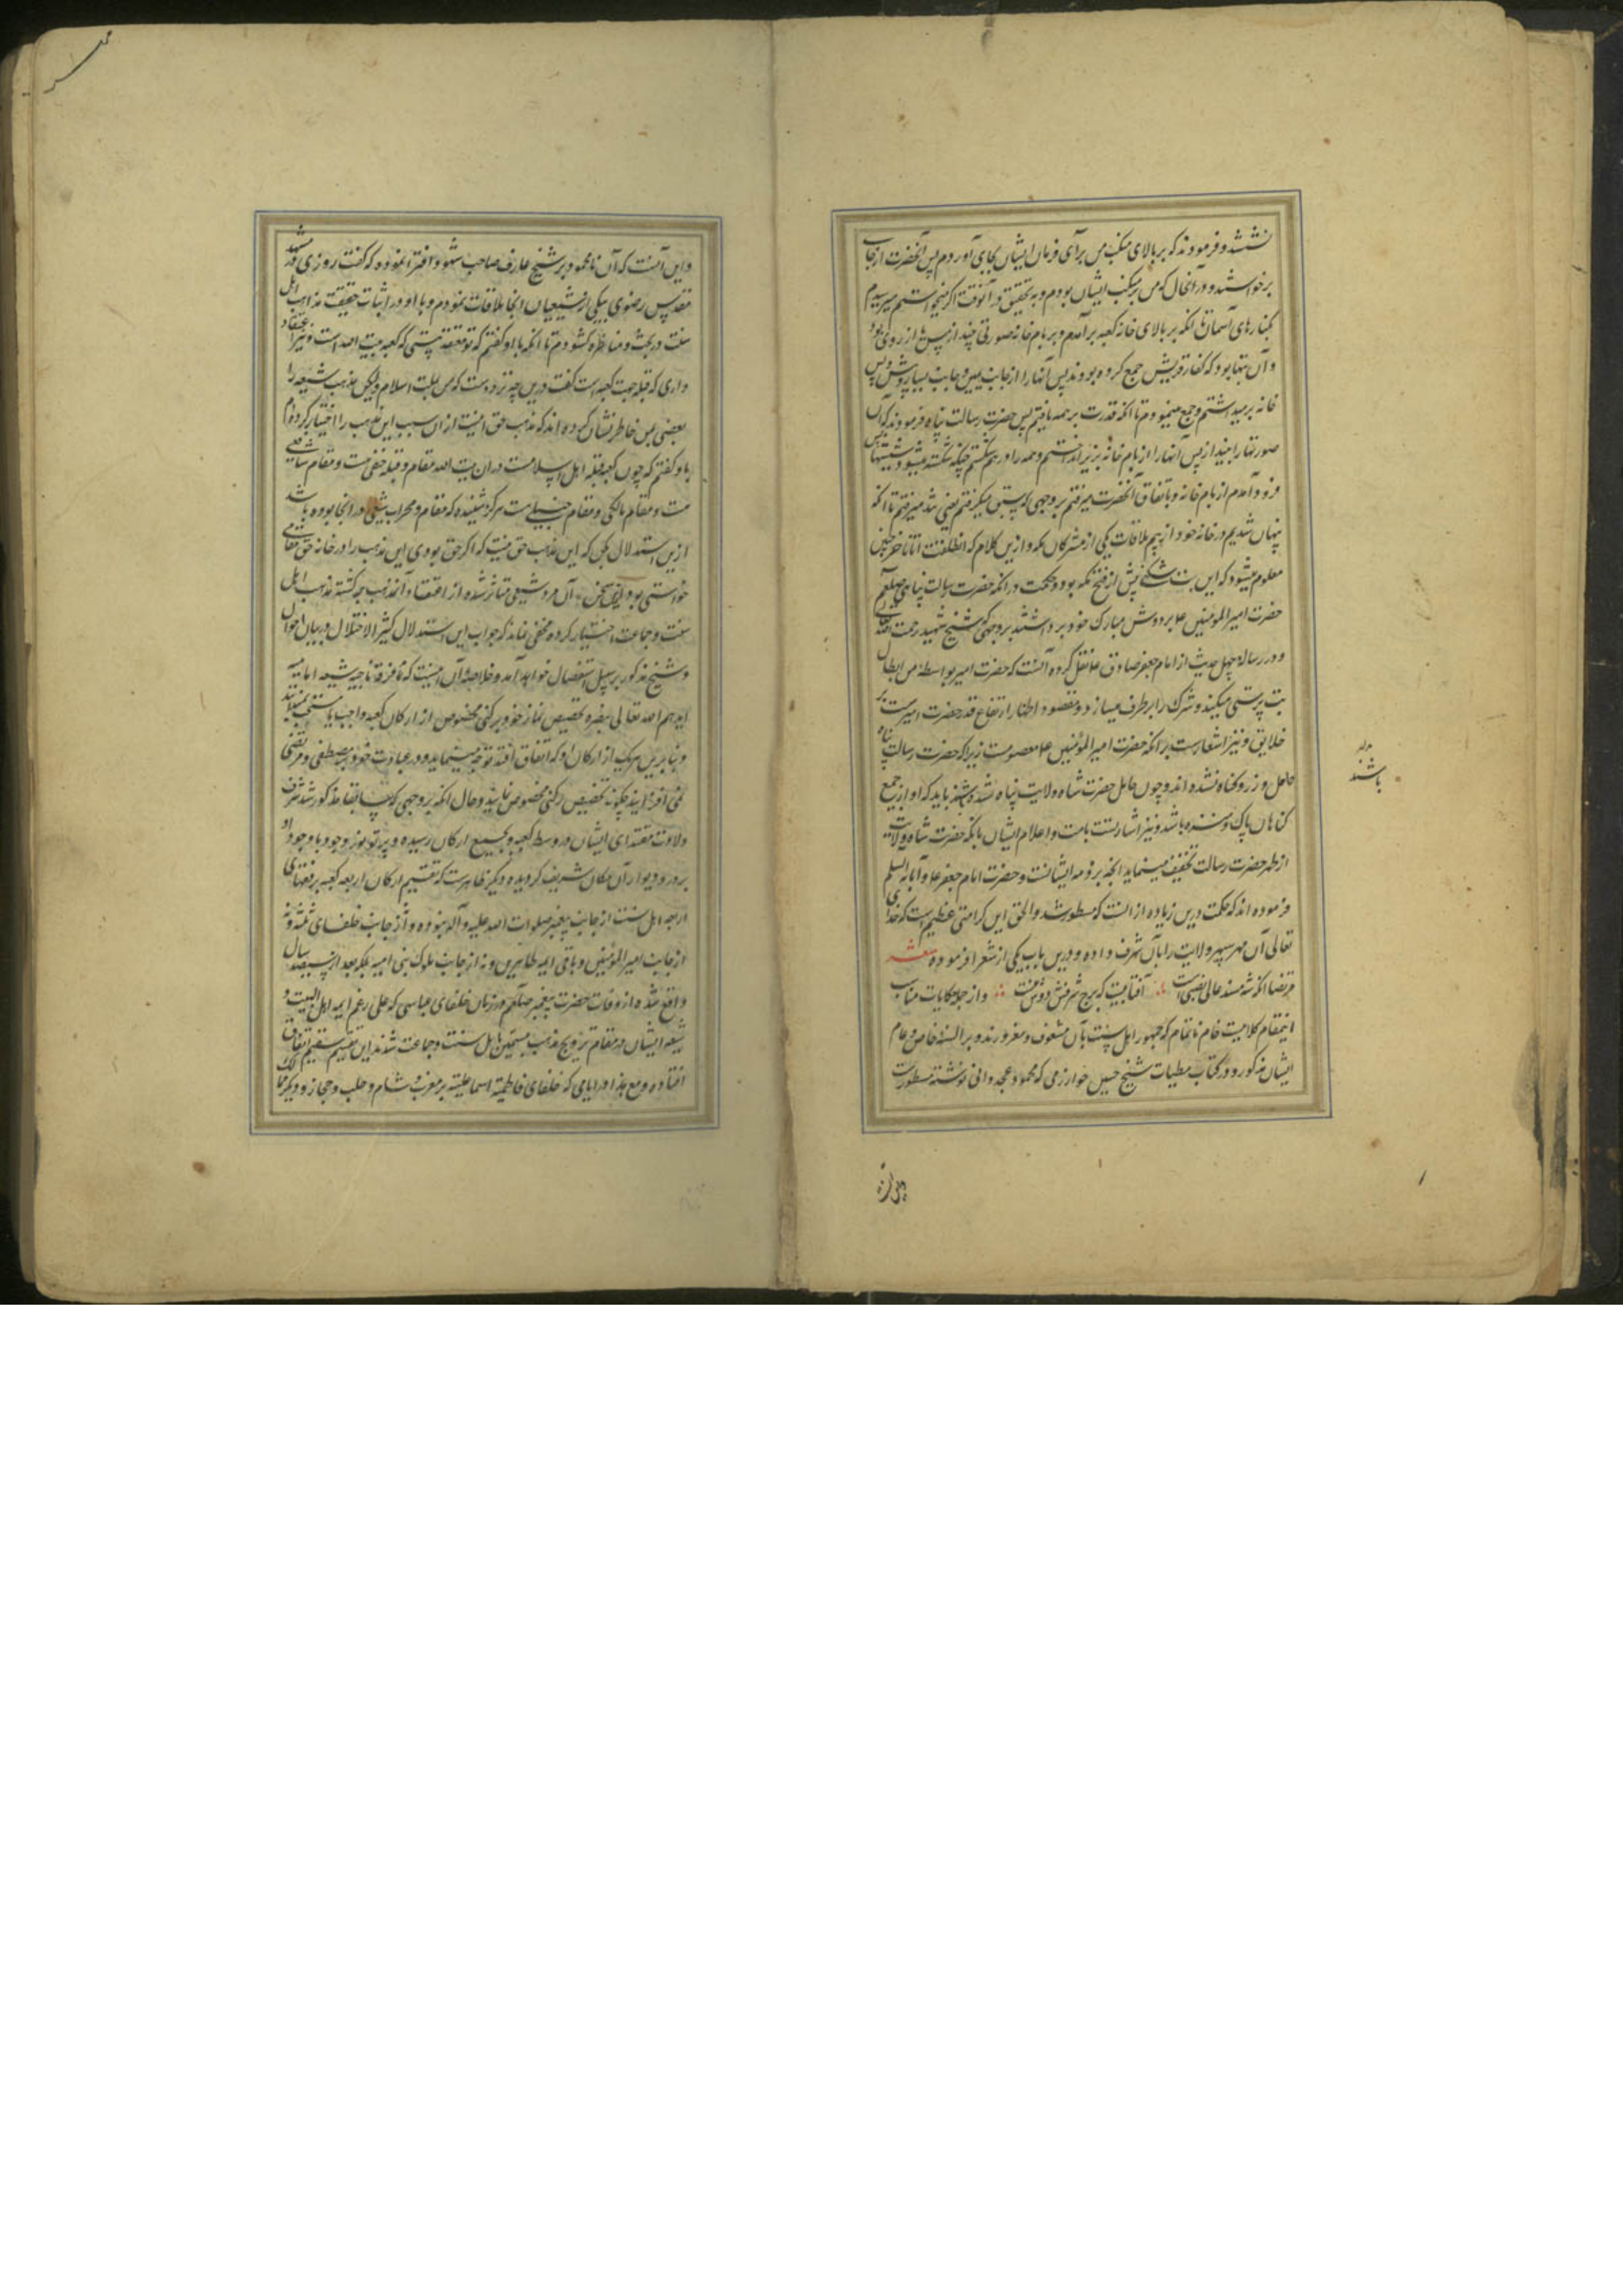 نشستند و فرمودند که بر بالای منکب من برآی فرمان ایشان بجای آوردم پس آنحضرت از جا
برخواستند و در آنحال که من بر منکب ایشان بودم و به تحقیق در آنوقت اگر میخواستم میرسیدم
بکنارهای آسمان تا آنکه بر بالای خانه کعبه برآمدم و بر بام خانه صورتی چند از مس یا از روی بود
و آن بتها بود که کفار قریش جمع کرده بودند پس آنها را از جانب یمین و جانب یسار و پیش و پس
خانه برمیداشتم و جمع مینمودم تا آنکه قدرت بر همه یافتم پس حضرت رسالت پناه فرمودند که آن
صورتها را بیند از پس آنها را از بام خانه بزیر انداختم و همه را درهم شکستم چنانکه شکسته میشود شیشها پس
فرود آمدم از بام خانه و باتفاق آنحضرت میرفتم بر وجهی که پیشی میگرفتم یعنی تند میرفتم تا آنکه
پنهان شدیم در خانه خود از بیم ملاقات یکی از مشرکان مکه و ازین کلام که انطلقت انا تا آخر چنین
معلوم میشود که این بت شکنی پیش از فتح مکه بود و حکمت در آنکه حضرت رسالت پناهی صلعم
حضرت امیر المومنین ع بر دوش مبارک خود برداشتند بر وجهی که شیخ شهید رحمت الله
در رساله چهل حدیث از امام جعفر صادق ع نقل کرده آنست که حضرت امیر بواسطه من ابطال
بت پرستی میکند و شرک را برطرف میسازد و مقصود اظهار ارتفاع قدر حضرت امیرست بر
خلایق و نیز اشعارست بر آنکه حضرت امیر المؤمنین ع معصومست زیرا که حضرت رسالت پناه
حامل وزر و گناه نشده اند و چون حامل حضرت شاه ولایت پناه شده باید که او از جمیع
گناهان پاک و منزه باشد و نیز اشارتست بامت و اعلام ایشان بانکه حضرت شاه ولایت
از ظهر حضرت رسالت تخفیف مینماید آنچه بر ذمه ایشانست و حضرت امام جعفر ع و آبائه السلم
فرموده اند که حکمت درین زیاده از آنست که مسطور شد و الحق این کرامتی عظیم است که خدای
تعالی آن مهر سپهر ولایت را بآن شرف داده و درین باب یکی از شعرا فرموده شعر
مرتضا انکه شه مسند عالی نسبست آفتابیست که برج شرفش دوش نبیست و از جمله حکایات مناسب
اینمقام کلامیست خام ناتمام که جمهور اهل سنت بآن مشعوف و مغرورند و بر السنه خاص و عام
ایشان مذکور و در کتاب شیخ حسین خوارزمی که محمود عجدوانی نوشته مسطورست
باشند
و این آنست که آن نامحمود بر شیخ عارف صاحب شهود افترا نموده که گفت روزی در مشهد
مقدس رضوی بیکی از شیعیان آنجا ملاقات نمودم و با او در اثبات حقیقت مذاهب اهل
سنت در بحث و مناظره گشودم تا آنکه با او گفتم که تو معتقد نیستی که کعبه بیت الله است و نیز اعتقاد
داری که قبله جهت کعبه است گفت درین چه تردد ست که من بملت اسلام ولیکن مذهب شیعه را
بعضی بمن خاطر نشان کرده اند که مذهب حق اینست ازان سبب این مذهب را اختیار کرده ام
باو گفتم که چون کعبه قبله اهل اسلامست در ان بیت الله مقام و قبله حنفی ست و مقام شافعی
ست و مقام مالکی و مقام حنبلی ست هرگز شنیده که مقام و محراب شیعی در انجا بوده باشد
ازین استدلال کن که این مذهب حق نیست که اگر حق بودی این مذهب را در خانه حق مقامی
خواستی بود ازین سخن آن مرد شیعی متاثر شده از اعتقاد آنمذهب برگشته مذهب اهل
سنت و جماعت اختیار کرده مخفی نماند که جواب این استدلال کثیر الاختلال در بیان احوال
شیخ مذکور بر سبیل استفصال خواهد آمد و خلاصه آن اینست که فرقه ناجیه شیعه امامیه
ایدهم الله تعالی بنصره تخصیص نماز خود برکنی مخصوص از ارکان کعبه واجب یا مستحب نمیدانند
و بنابرین بهریک از ارکان او که اتفاق افتد توجه مینماید و در عبادت خود بمصطفی و مرتضی
می افزایند چگونه تخصیص رکنی مخصوص نمایند و حال آنکه بر وجهی که سابقا مذکور شد شرف
ولادت مقتدای ایشان در وسط کعبه و بجمیع ارکان رسیده و پرتو نور وجود با وجود او
بر در و دیوار آن مکان شریف گردیده و دیگر ظاهرست که تقسیم ارکان اربعه کعبه بر فقهای
اربعه اهل سنت از جانب پیغمبر صلوات الله علیه و آله نبوده و از جانب خلفای ثلثه و نه
از جانب امیر المؤمنین و باقی ایمه طاهرین و نه از جانب ملوک بنی امیه بلکه بعد از سیصد سال
واقع شده از وفات حضرت پیغمبر صلعم در زمان خلفای عباسی که علی رغم ایمه اهل البیت و
شیعه ایشان در مقام ترویج مذهب مسمین باهل سنت و جماعت شدند این تقسیم سقیم اتفاق
افتاده و مع هذا در ایامی که خلفای فاطمیه اسماعیلیه بر مغرب و شام و حلب و حجاز و دیگر ممالک